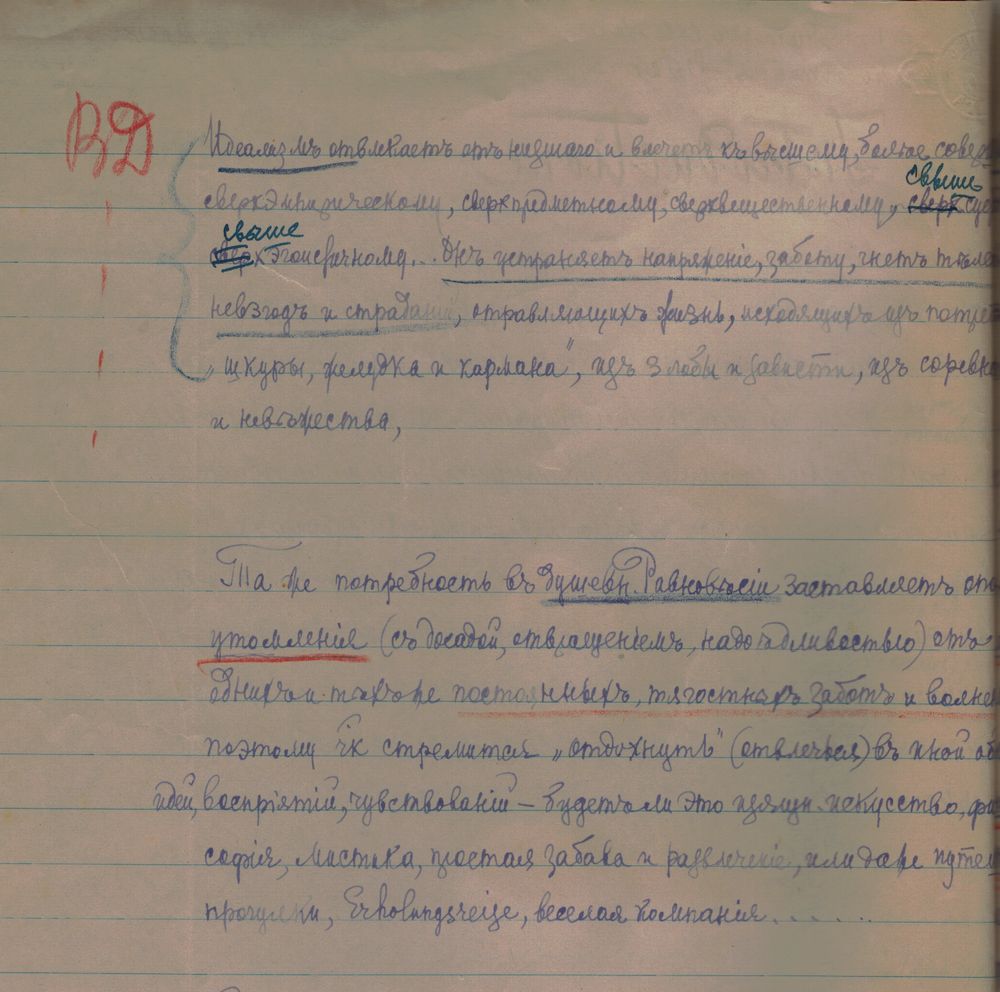 ВД
Идеализмъ отвлекаетъ отъ низшаго и влечетъ къ высшему, болѣе совер
свыше
сверхэмпирическому, сверхпредметному, сверхвещественному, сверх
свыше
сверхэгоистичному... Онъ устраняетъ напряженіе, заботу, гнетъ
невзгодъ и страданій, отравляющихъ жизнь, исходящихъ изъ потреб
„шкуры, желудка и кармана", изъ злобы и зависти, изъ соревн
и невѣжества,
Та же потребность въ душевн. Равновѣсіи заставляетъ
утомленія (съ досадой, отвращеніемъ, надоѣдливостью) отъ
однихъ и тѣхъ же постоянныхъ, тягостныхъ заботъ и волнен
поэтому чк стремится „отдохнуть" (отвлечься) въ иной об
идей, воспріятій, чувствованій – будетъ ли это изящн. искусство, фи
софія, мистика, простая забава и развлеченіе, или даже путе
прогулки, Erholungsreise, веселая компанія.......